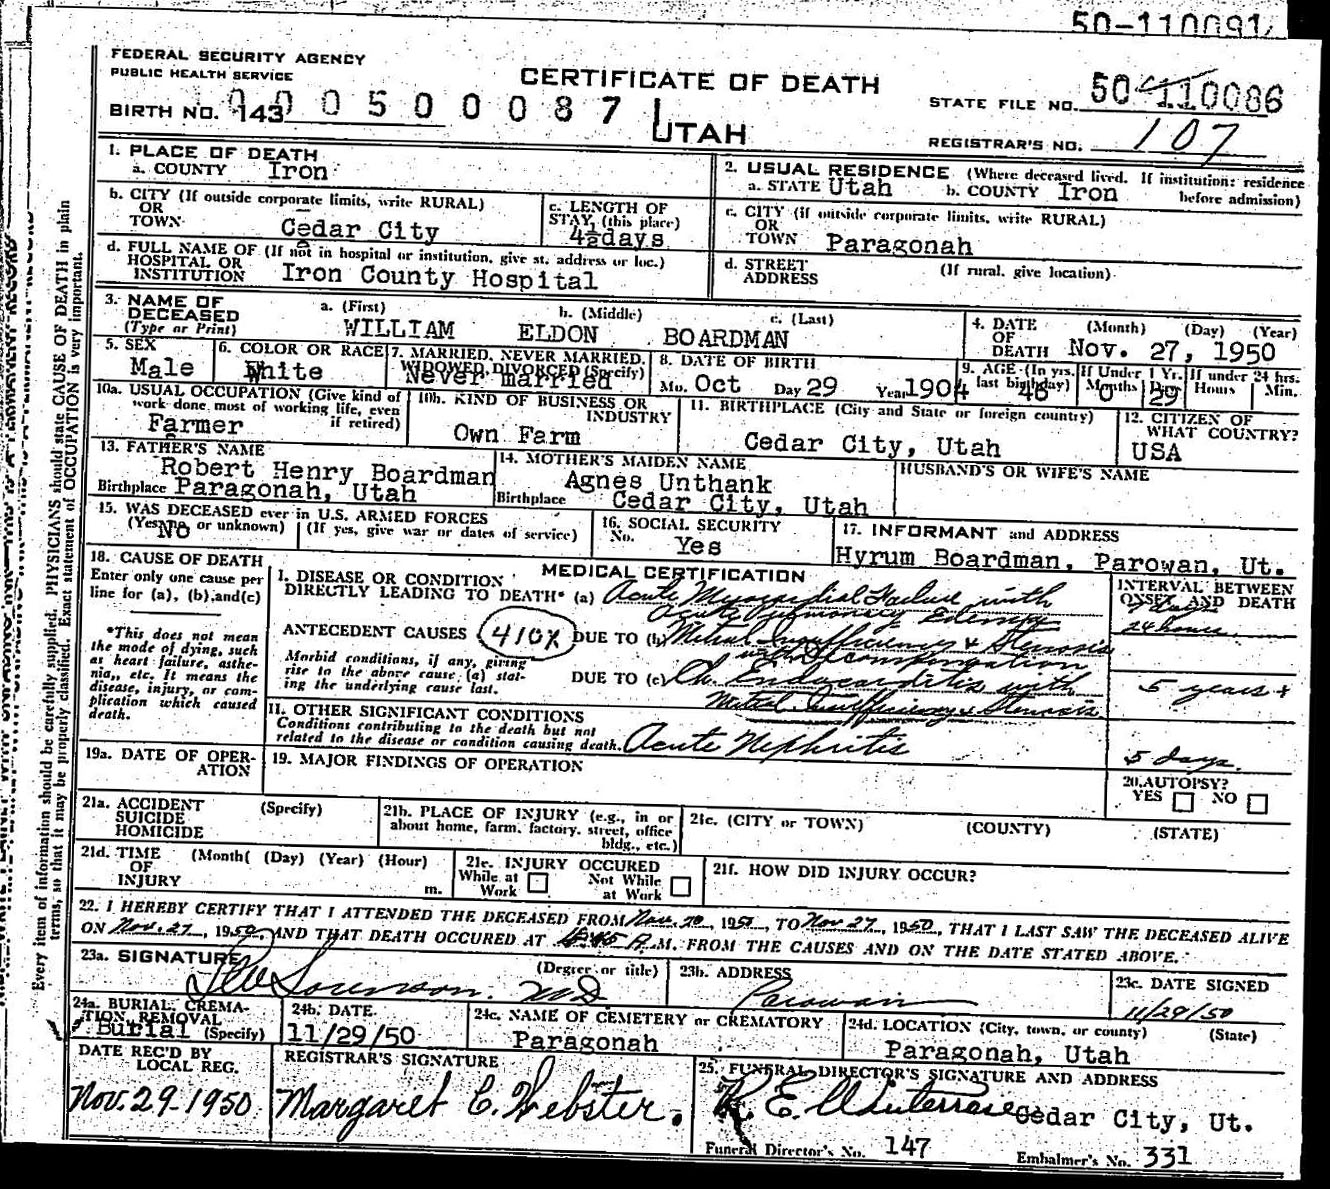 50-110091
FEDERAL SECURITY AGENCY
PUBLIC HEALTH SERVICE
CERTIFICATE OF DEATH
BIRTH NO. 143 000500087
UTAH
STATE FILE NO. 50-110086
REGISTRAR'S NO. 107
1. PLACE OF DEATH
a. COUNTY Iron
2. USUAL RESIDENCE (Where deceased lived. If institution: residence before admission)
a. STATE Utah b. COUNTY Iron
b. CITY (If outside corporate limits, write RURAL)
OR
TOWN Cedar City
c. LENGTH OF
STAY (this place)
4½days
c. CITY (if outside corporate limits, write RURAL)
OR
TOWN Paragonah
d. FULL NAME OF (If not in hospital or institution, give st. address or loc.)
HOSPITAL OR
INSTITUTION Iron County Hospital
d. STREET
ADDRESS
(If rural, give location)
3. NAME OF
DECEASED
(Type or Print)
a. (First) b. (Middle) c. (Last)
WILLIAM ELDON BOARDMAN
4. DATE
OF
DEATH
(Month) (Day) (Year)
Nov. 27, 1950
5. SEX
Male
6. COLOR OR RACE
White
7. MARRIED, NEVER MARRIED,
WIDOWED, DIVORCED (Specify)
Never married
8. DATE OF BIRTH
Mo. Oct Day 29 Year 1904
9. AGE (In yrs. last birthday) 46
If Under 1 Yr. Months 0 Days 29
If under 24 hrs. Hours Min.
10a. USUAL OCCUPATION (Give kind of
work done most of working life, even
if retired)
Farmer
10b. KIND OF BUSINESS OR
INDUSTRY
Own Farm
11. BIRTHPLACE (City and State or foreign country)
Cedar City, Utah
12. CITIZEN OF
WHAT COUNTRY?
USA
13. FATHER'S NAME
Robert Henry Boardman
Birthplace Paragonah, Utah
14. MOTHER'S MAIDEN NAME
Agnes Unthank
Birthplace Cedar City, Utah
HUSBAND'S OR WIFE'S NAME
15. WAS DECEASED ever in U.S. ARMED FORCES
(Yes, no, or unknown) (If yes, give war or dates of service)
No
16. SOCIAL SECURITY
No. Yes
17. INFORMANT and ADDRESS
Hyrum Boardman, Parowan, Ut.
18. CAUSE OF DEATH
Enter only one cause per
line for (a), (b), and (c)
*This does not mean
the mode of dying, such
as heart failure, asthenia,
etc. It means the
disease, injury, or complication
which caused
death.
MEDICAL CERTIFICATION
I. DISEASE OR CONDITION
DIRECTLY LEADING TO DEATH* (a) Acute Myocardial Failure with
Acute Pulmonary Edema
INTERVAL BETWEEN
ONSET AND DEATH
24 hours
ANTECEDENT CAUSES 410X DUE TO (b) Mitral Insufficiency & Stenosis
with Decompensation
Morbid conditions, if any, giving
rise to the above cause (a) stating
the underlying cause last.
DUE TO (c) Ch. Endocarditis with
Mitral Insufficiency & Stenosis
5 years +
II. OTHER SIGNIFICANT CONDITIONS
Conditions contributing to the death but not
related to the disease or condition causing death.
Acute Nephritis
5 days.
19a. DATE OF OPERATION
19. MAJOR FINDINGS OF OPERATION
20. AUTOPSY?
YES NO
21a. ACCIDENT
SUICIDE
HOMICIDE
(Specify)
21b. PLACE OF INJURY (e.g., in or
about home, farm, factory, street, office
bldg., etc.)
21c. (CITY or TOWN) (COUNTY) (STATE)
21d. TIME
OF
INJURY
(Month( (Day) (Year) (Hour)
m.
21e. INJURY OCCURED
While at Work
Not While at Work
21f. HOW DID INJURY OCCUR?
22. I HEREBY CERTIFY THAT I ATTENDED THE DECEASED FROM Nov. 20, 1950, TO Nov 27, 1950, THAT I LAST SAW THE DECEASED ALIVE
ON Nov. 27, 1950, AND THAT DEATH OCCURED AT A.M. FROM THE CAUSES AND ON THE DATE STATED ABOVE.
23a. SIGNATURE
(Degree or title)
Sorenson M D
23b. ADDRESS
Parowan
23c. DATE SIGNED
11/29/50
24a. BURIAL, CREMATION,
REMOVAL
Burial (Specify)
24b. DATE
11/29/50
24c. NAME OF CEMETERY or CREMATORY
Paragonah
24d. LOCATION (City, town, or county) (State)
Paragonah, Utah
DATE REC'D BY
LOCAL REG.
Nov. 29-1950
REGISTRAR'S SIGNATURE
Margaret C. Webster.
25. FUNERAL DIRECTOR'S SIGNATURE AND ADDRESS
Cedar City, Ut.
Funeral Director's No. 147
Embalmer's No. 331
Every item of information should be carefully supplied. PHYSICIANS should state CAUSE OF DEATH in plain
terms, so that it may be properly classified. Exact statement of OCCUPATION is very important.